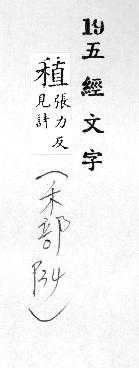 19五經文字
稙張力反
見詩
（禾部134）